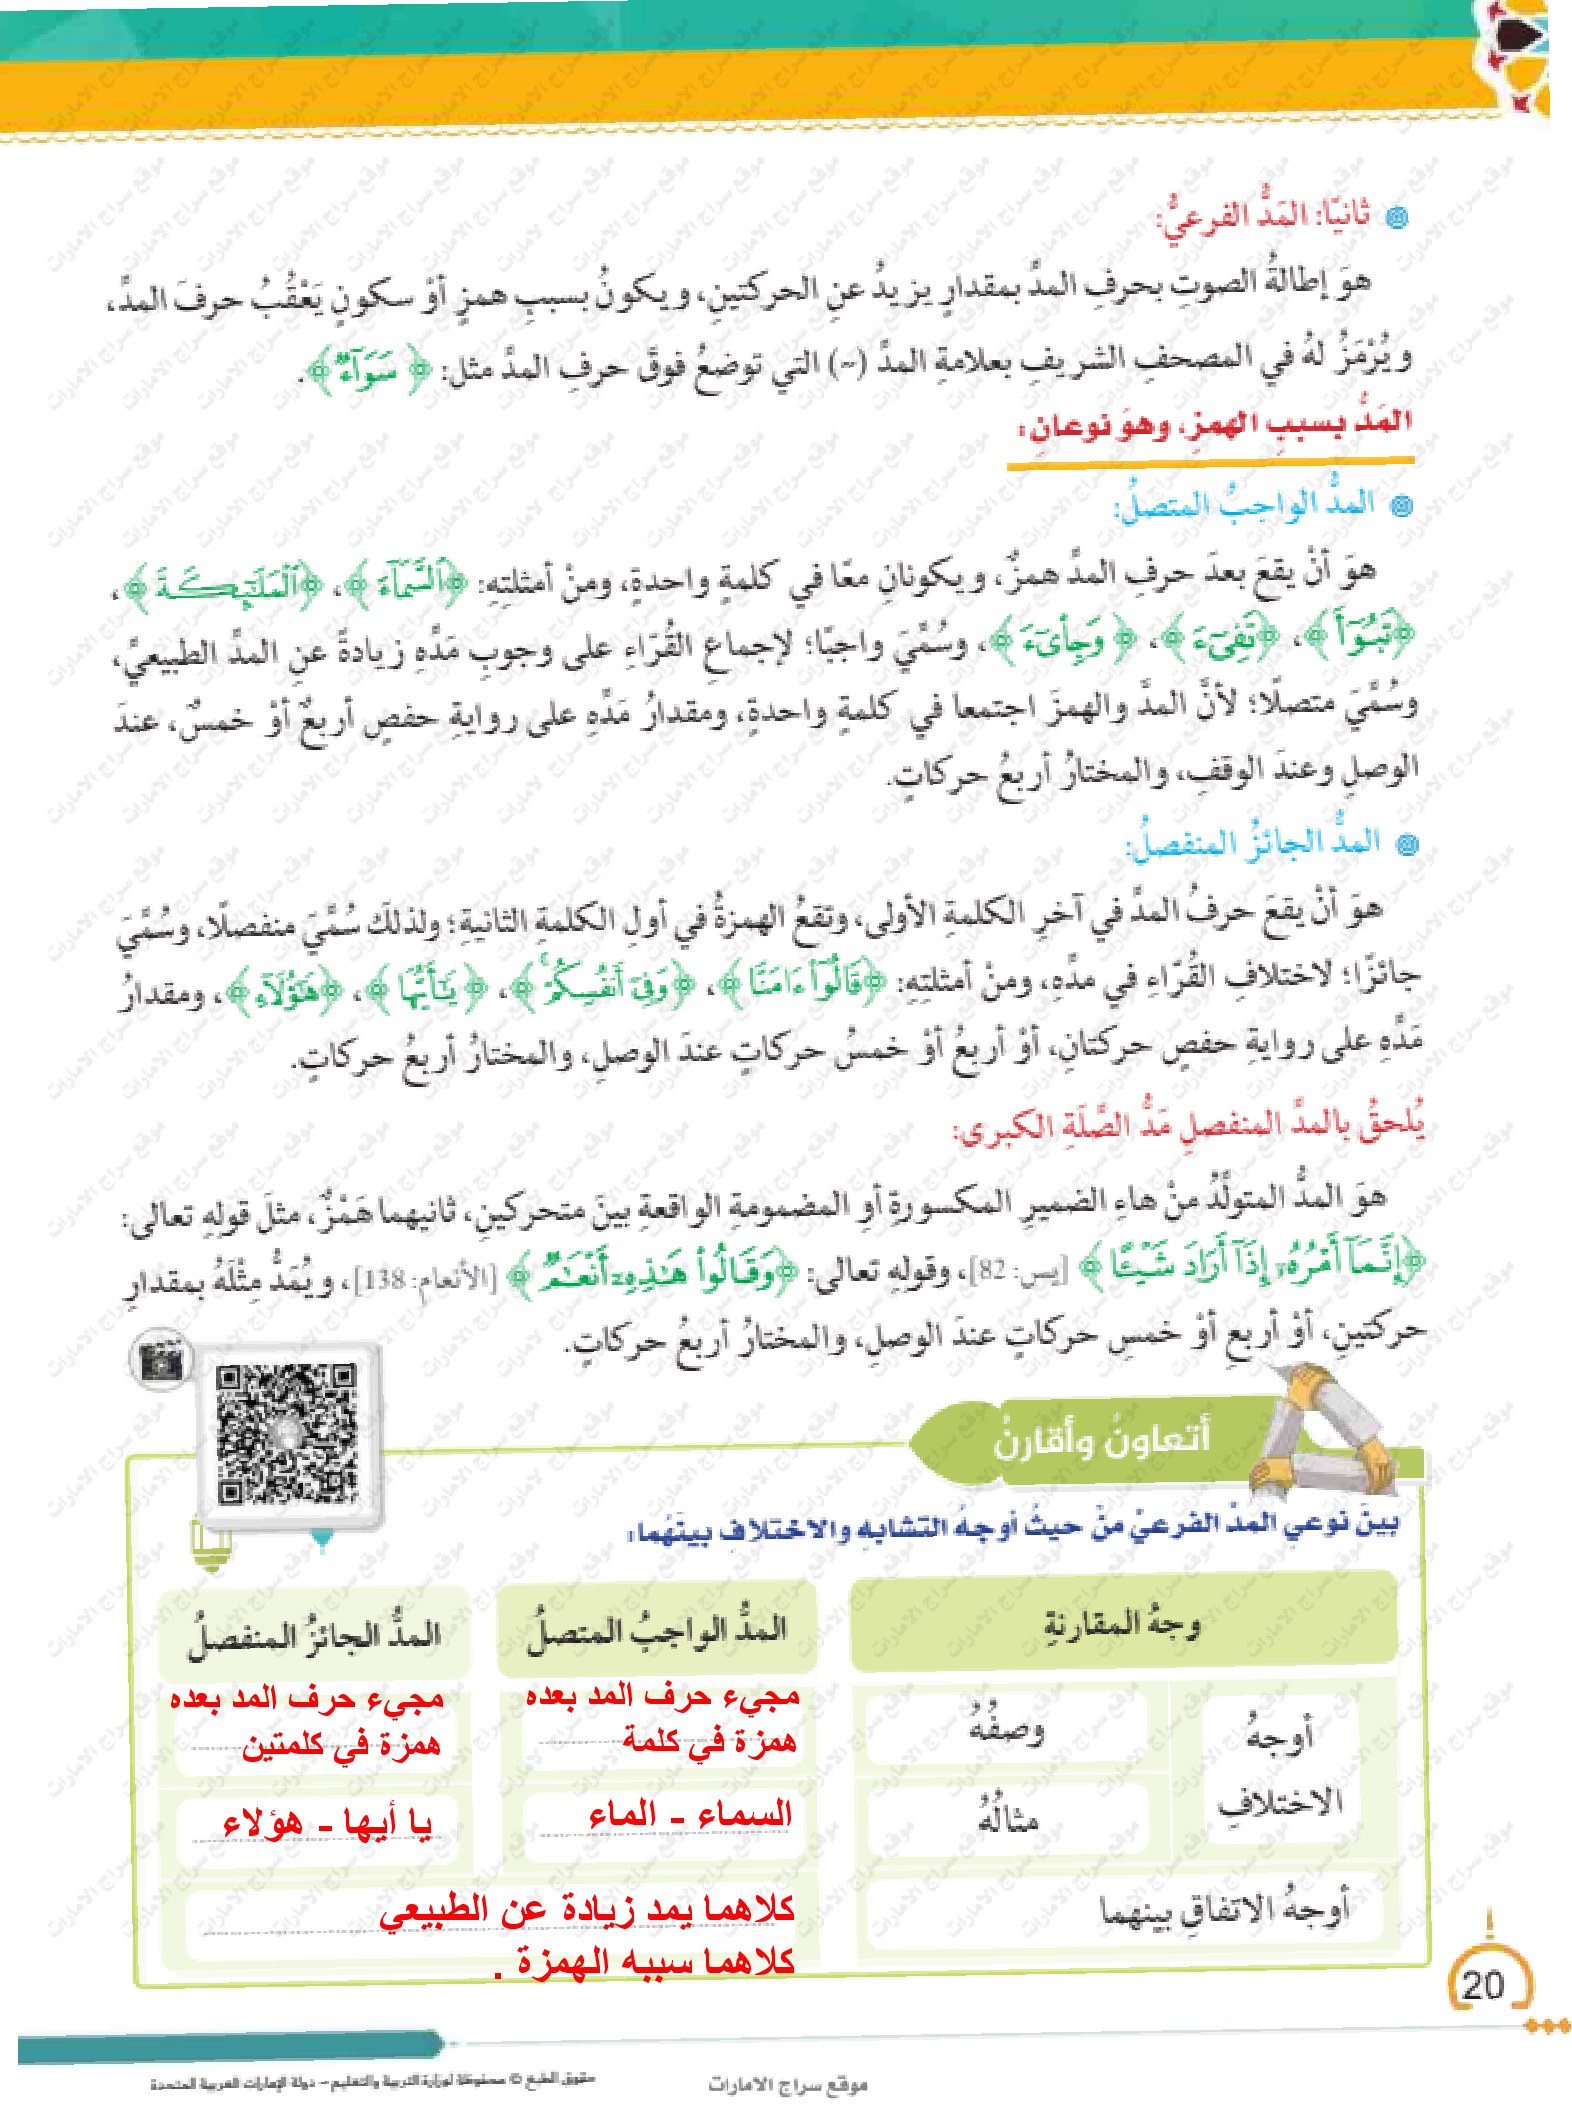 ثانيًا: المَدُّ الفرعيُّ:
هوَ إطالةُ الصوتِ بحرفِ المدِّ بمقدارٍ يزيدُ عنِ الحركتينِ، ويكونُ بسببِ همزٍ أوْ سكونٍ يَعْقُبُ حرفَ المدِّ،
ويُرْمَزُ لهُ في المصحفِ الشريفِ بعلامةِ المدِّ (~) التي توضعُ فوقَ حرفِ المدِّ مثل: ﴿سَوَآءٌ﴾.
المَدُّ بسببِ الهمزِ، وهوَ نوعانِ:
المدُّ الواجبُ المتصلُ:
هوَ أنْ يقعَ بعدَ حرفِ المدِّ همزٌ، ويكونانِ معًا في كلمةٍ واحدةٍ، ومنْ أمثلتِهِ: ﴿ٱلسَّمَآءَ﴾، ﴿ٱلْمَلَٰٓئِكَةَ﴾،
﴿تَبُوٓأَ﴾، ﴿تَفِىٓءَ﴾، ﴿وَجِا۟ىٓءَ﴾، وسُمِّيَ واجبًا؛ لإجماعِ القُرّاءِ على وجوبِ مَدِّهِ زيادةً عنِ المدِّ الطبيعيِّ،
وسُمِّيَ متصلًا؛ لأنَّ المدَّ والهمزَ اجتمعا في كلمةٍ واحدةٍ، ومقدارُ مَدِّهِ على روايةِ حفصٍ أربعٌ أوْ خمسٌ، عندَ
الوصلِ وعندَ الوقفِ، والمختارُ أربعُ حركاتٍ.
المدُّ الجائزُ المنفصلُ:
هوَ أنْ يقعَ حرفُ المدِّ في آخرِ الكلمةِ الأولى، وتقعُ الهمزةُ في أولِ الكلمةِ الثانيةِ؛ ولذلكَ سُمِّيَ منفصلًا، وسُمِّيَ
جائزًا؛ لاختلافِ القُرّاءِ في مدِّهِ، ومنْ أمثلتِهِ: ﴿قَالُوٓا۟ ءَامَنَّا﴾، ﴿وَفِىٓ أَنفُسِكُمْ﴾، ﴿يَٰٓأَيُّهَا﴾، ﴿هَٰٓؤُلَآءِ﴾، ومقدارُ
مَدِّهِ على روايةِ حفصٍ حركتانِ، أوْ أربعُ أوْ خمسُ حركاتٍ عندَ الوصلِ، والمختارُ أربعُ حركاتٍ.
يُلحقُ بالمدِّ المنفصلِ مَدُّ الصِّلَةِ الكبرى:
هوَ المدُّ المتولّدُ منْ هاءِ الضميرِ المكسورةِ أوِ المضمومةِ الواقعةِ بينَ متحركينِ، ثانيهما هَمْزٌ، مثلَ قولِهِ تعالى:
﴿إِنَّمَآ أَمْرُهُۥٓ إِذَآ أَرَادَ شَيْـًٔا﴾ [يس: 82]، وقولِهِ تعالى: ﴿وَقَالُوا۟ هَٰذِهِۦٓ أَنْعَٰمٌ﴾ [الأنعام: 138]، ويُمَدُّ مِثْلَهُ بمقدارِ
حركتينِ، أوْ أربعِ أوْ خمسِ حركاتٍ عندَ الوصلِ، والمختارُ أربعُ حركاتٍ.
أتعاونُ وأقارنُ
بينَ نوعي المدِّ الفرعيِّ منْ حيثُ أوجهُ التشابهِ والاختلافِ بينَهُما:
وجهُ المقارنةِ
المدُّ الواجبُ المتصلُ
المدُّ الجائزُ المنفصلُ
أوجهُ
الاختلافِ
وصفُهُ
مجيء حرف المد بعده
همزة في كلمة
مجيء حرف المد بعده
همزة في كلمتين
مثالُهُ
السماء - الماء
يا أيها - هؤلاء
أوجهُ الاتفاقِ بينهما
كلاهما يمد زيادة عن الطبيعي
كلاهما سببه الهمزة .
20
حقوق الطبع © محفوظة لوزارة التربية والتعليم – دولة الإمارات العربية المتحدة
موقع سراج الامارات